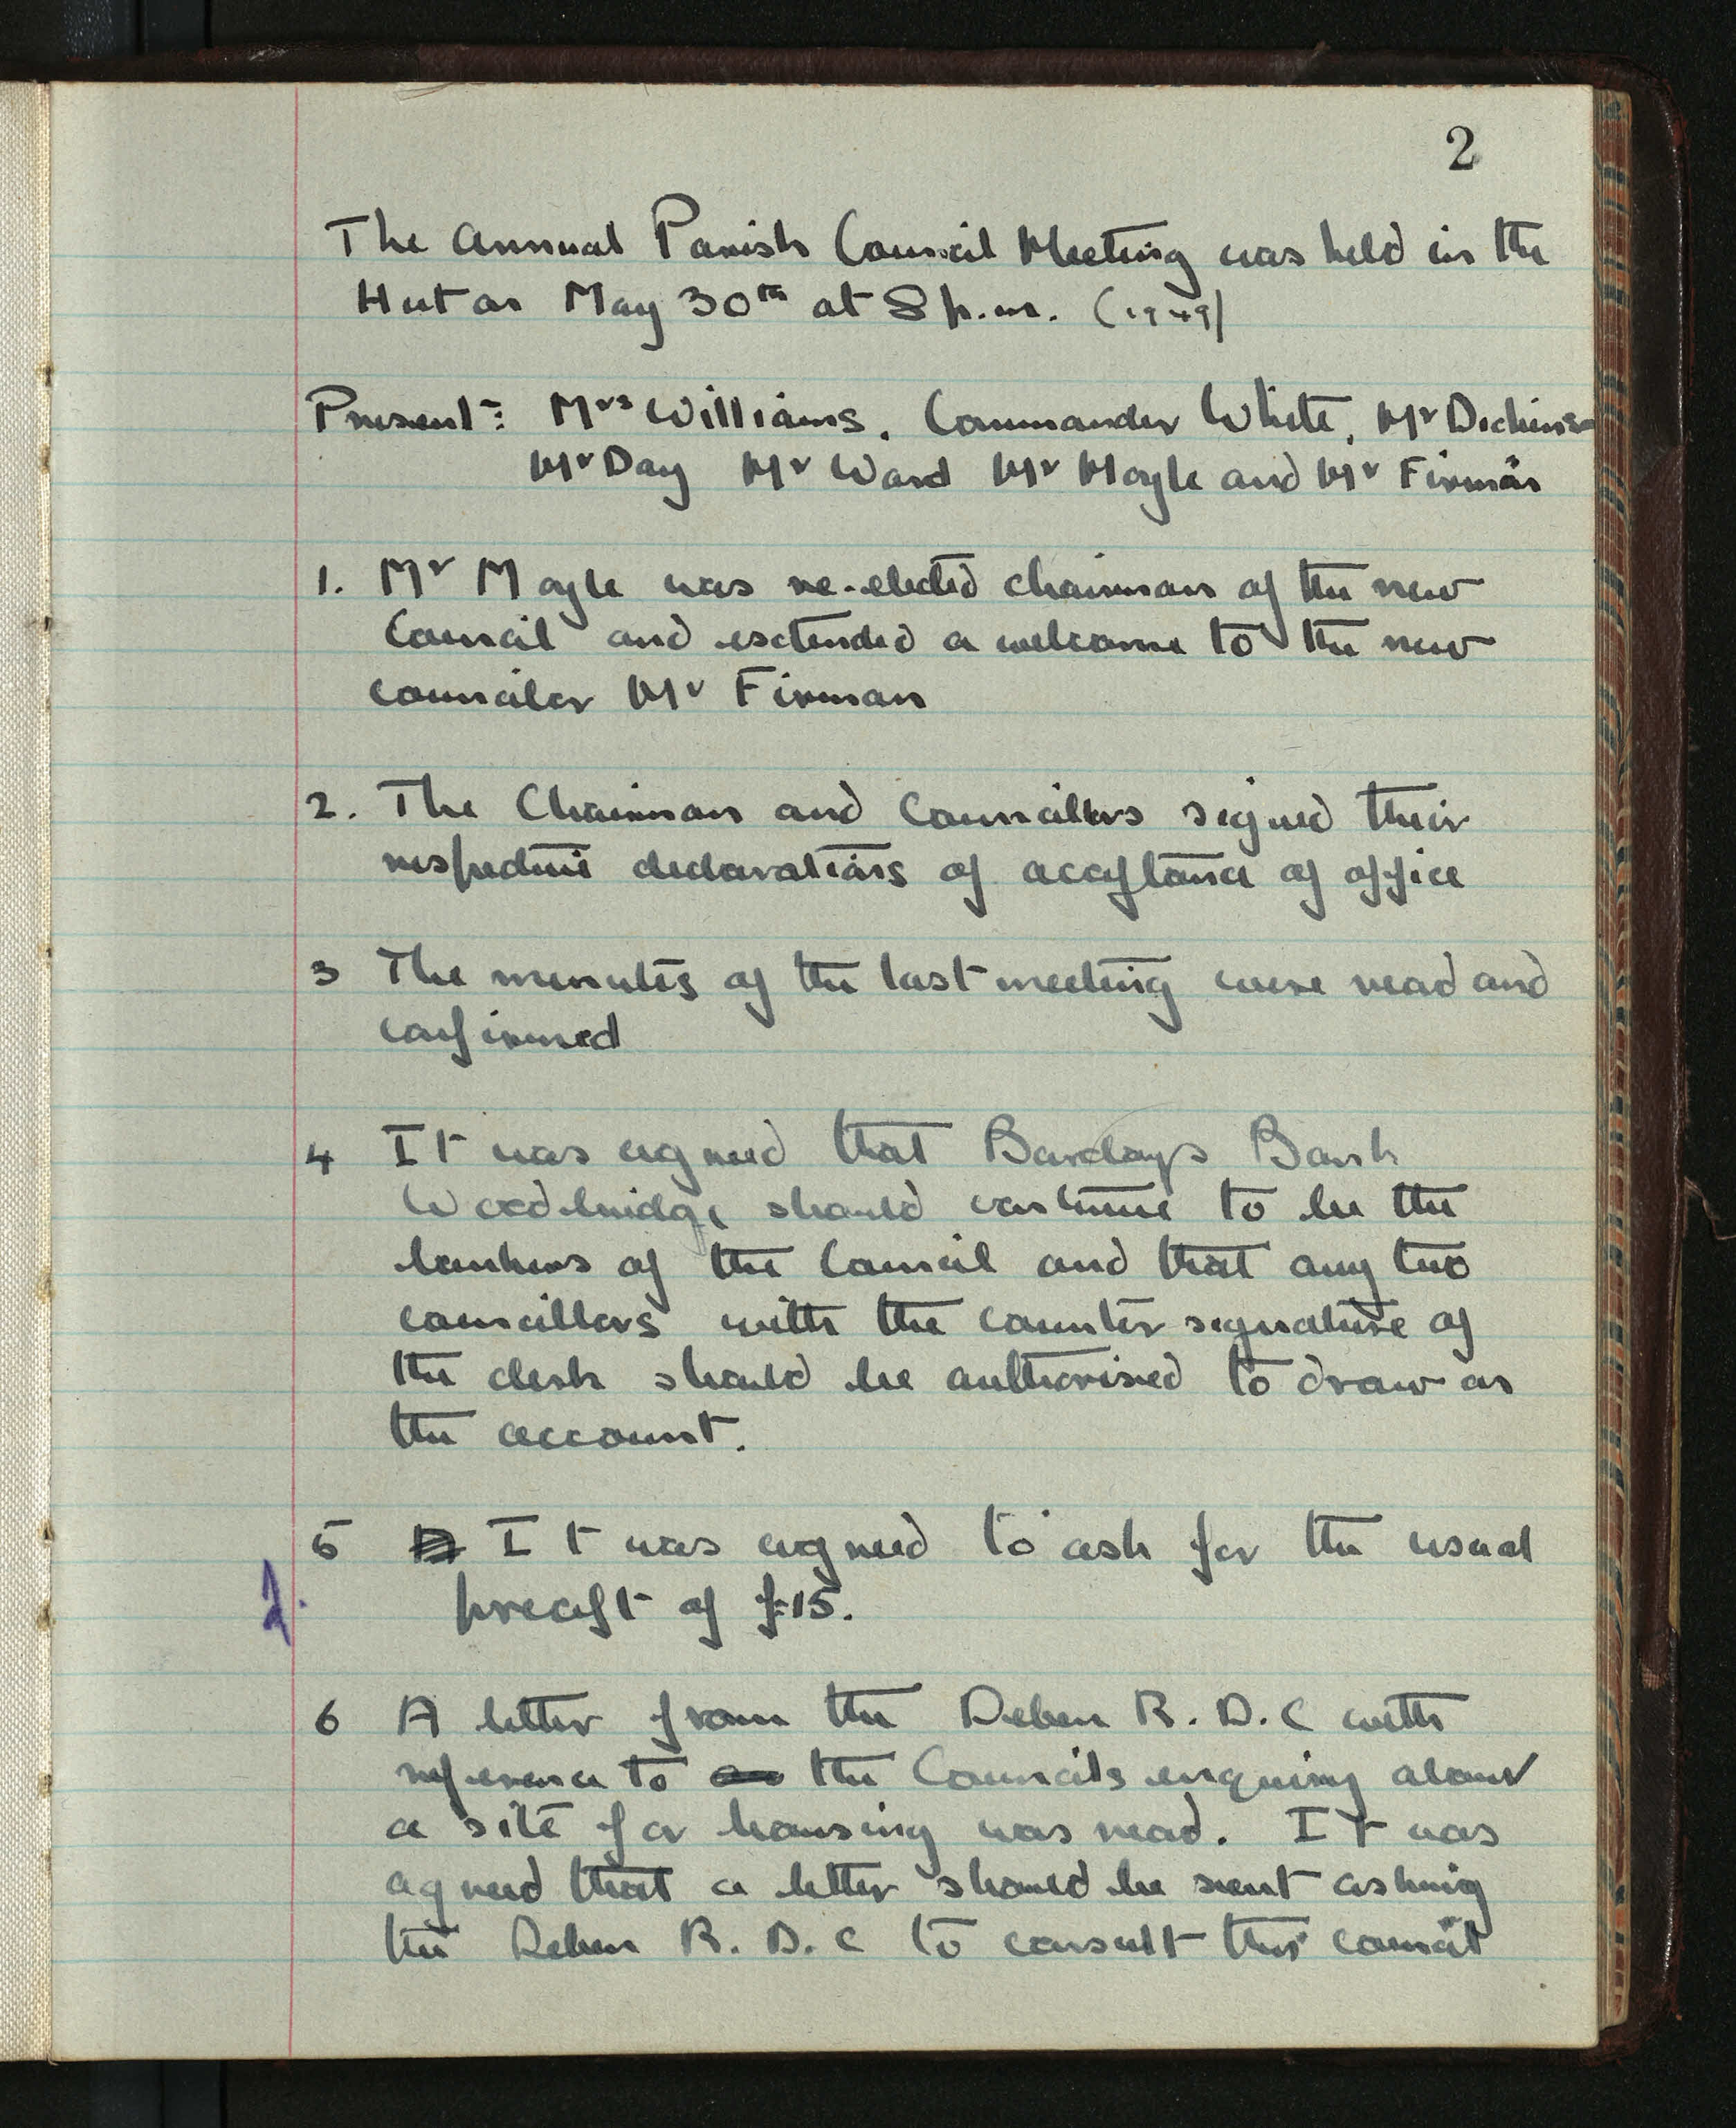 2
The Annual Parish Council Meeting was held in the
Hut on May 30th at 8 p.m. (1949)
Present:- Mrs Williams, Commander White, Mr Dickinson
Mr Day Mr Ward Mr Moyle and Mr Firman
1. Mr Moyle was re-elected chairman of the new
Council and extended a welcome to the new
councilor Mr Firman
2. The Chairman and Councillors signed their
respective declarations of acceptance of office
3 The minutes of the last meeting were read and
confirmed
4 It was agreed that Barclays Bank
Woodbridge should continue to be the
bankers of the Council and that any two
councillors with the counter signature of
the clerk should be authorised to draw on
the account.
5 It was agreed to ask for the usual
precept of £15.
6 A letter from the Deben R.D.C with
reference to the Councils enquiry about
a site for housing was read. It was
agreed that a letter should be sent asking
the Deben R.D.C to consult this council